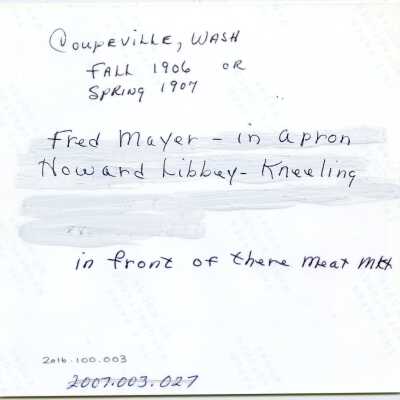 Coupeville, Wash
Fall 1906 or
Spring 1907
Fred Mayer - in apron
Howard Libbey - Kneeling
in front of there Meat Mkt
2016.100.003
2007.003.027